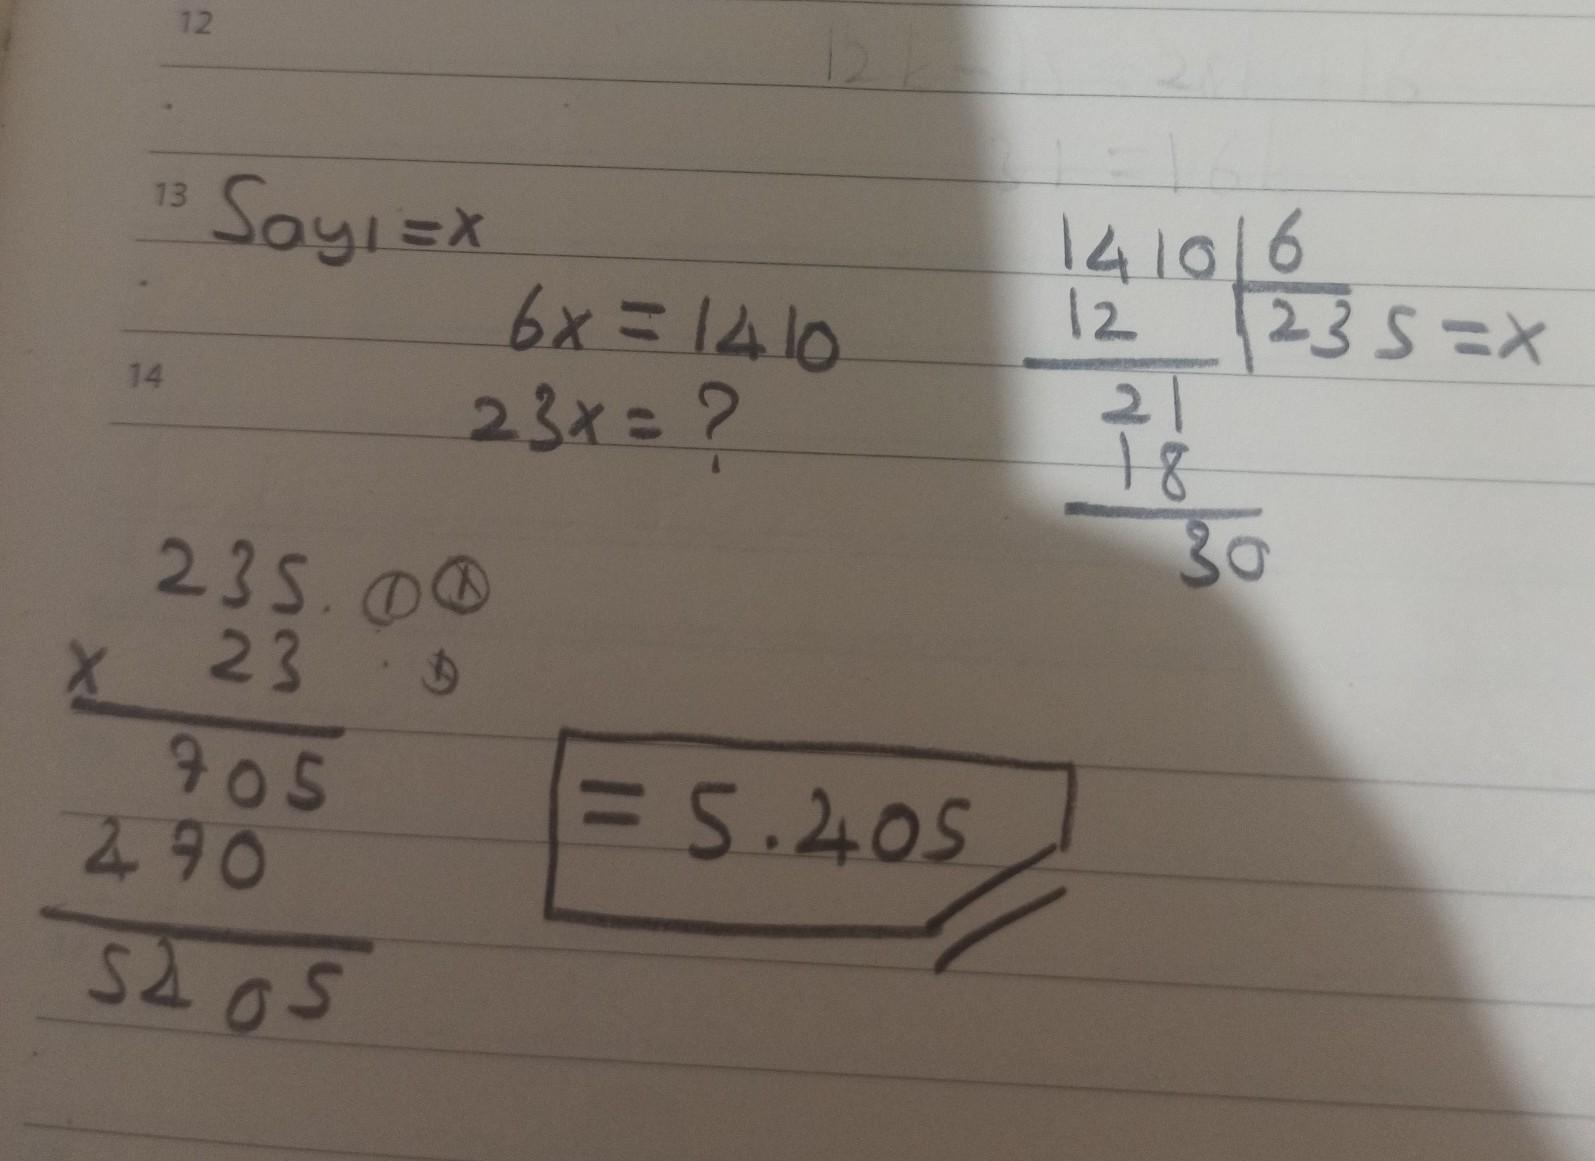 12
13 Sayı = x
6x = 1410
23x = ?
14
1410 | 6
12
235 = x
21
18
30
235
x 23
705
470
5405
= 5.405